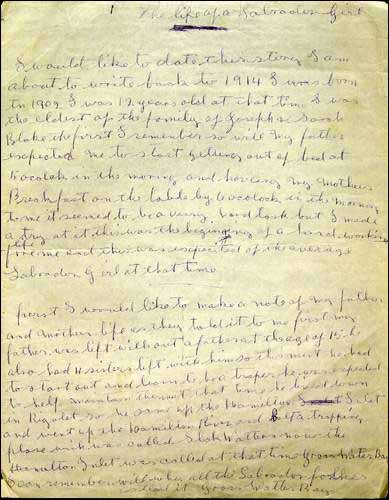 The life of a Labrador Girl
I would like to date this story I am
about to write back to 1914 I was born
In 1902 I was 12 years old at that tim I was
the eldest of the famely of Joseph & Sarah
Blake the first I remember so will my father
expected me to start getting out of bed at
to me it seemed to be a very hard task but I made
a try at it this was the begining of a hard working
life for me and this was expected of the average
Labrador Girl at that time
first I would like to make a note of my father
and mother life as they told it to me first my
father was lift without a father at the age of 15 he
also had sisters lift with him so this ment he had
to start out and learn to be a traper he was expected
to help maintain them at that time he lived down
in Rigolet so he came up the Hamilton Inlet
and went up the Hamilton River and trapping
place wich was called Slack Watter now the
Hamilton Inlet was called at that time Groos Water Bay
remember will when all the Labrador
call it Groos Water Bay